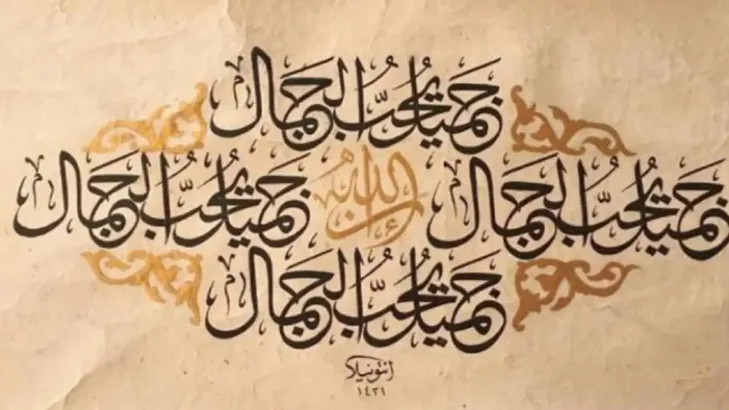 جميل يحب الجمال
إن الله
جميل يحب الجمال
جميل يحب الجمال
جميل يحب الجمال
أنتونيلا
١٤٣١